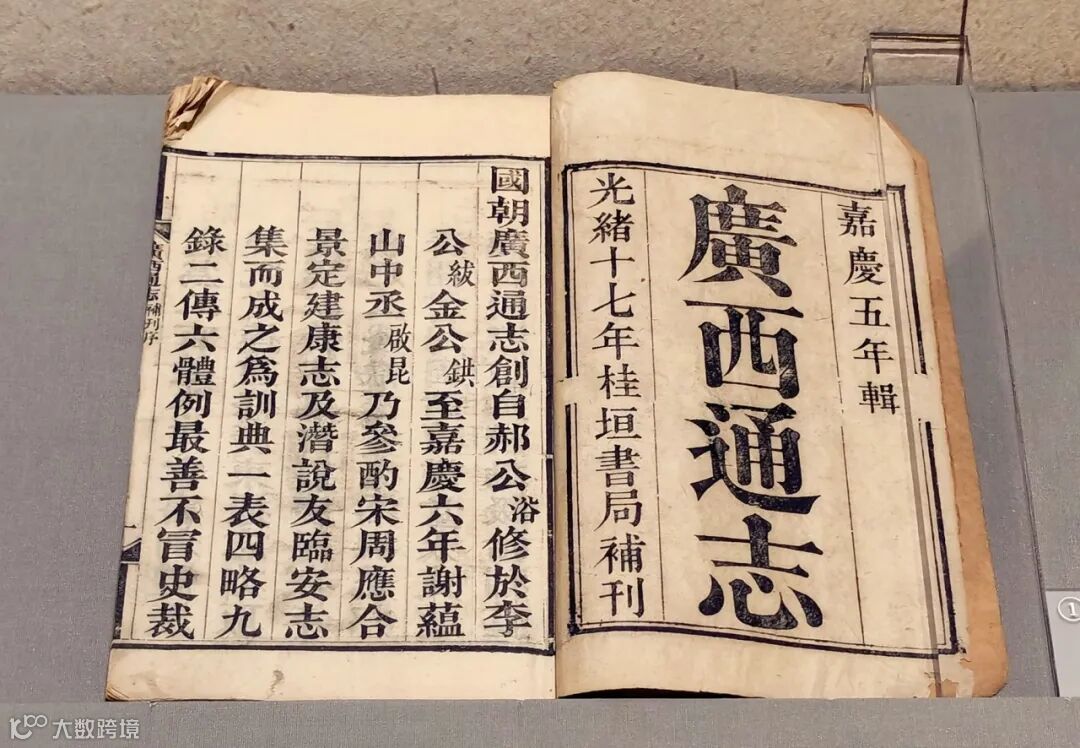 嘉慶五年輯
廣西通志
光緒十七年桂垣書局補刊
國朝廣西通志創自郝公浴修於李
公紱金公鉷至嘉慶六年謝蘊
山中丞啟昆乃參酌宋周應合
景定建康志及潛說友臨安志
集而成之為訓典一表四略九
錄二傳六體例最善不冒史裁
廣西通志補刊序
①
大数跨境